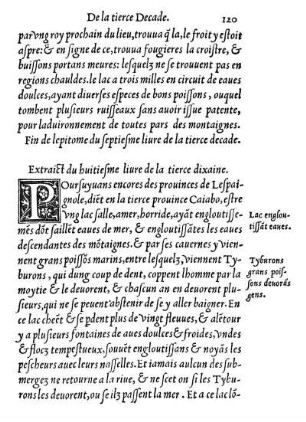 De la tierce Decade. 120
parvng roy prochain du lieu, trouua q̃ la, le froit y estoit
aspre: & en signe de ce, trouua fougieres la croistre, &
buissons portans meures: lesquelz ne se trouuent pas en
regions chauldes. le lac a trois milles en circuit de eaues
doulces, ayant diuerses especes de bons poissons, ouquel
tombent plusieurs ruisseaux sans auoir issue patente,
pour laduironnement de toutes pars des montaignes.
Fin de lepitome du septiesme liure de la tierce decade.
Extraict du huitiesme liure de la tierce dixaine.
POursuyuans encores des prouinces de Lespai-
gnole, diẽt en la tierce prouince Caiabo, estre
vng lac salle, amer, horride, ayãt engloutisse-
mẽs dõt saillẽt eaues de mer, & engloutissãtes les eaues
descendantes des mõtaignes. & par ses cauernes y vien-
nent grans poissõs marins, entre lesquelz, viennent Ty-
burons, qui dung coup de dent, coppent lhomme par la
moytie & le deuorent, & chascun an en deuorent plu-
sieurs, qui ne se peuent abstenir de se y aller baigner. En
ce lac cheẽt & se pdent plus de vingt fleuues, & alẽtour
y a plusieurs fontaines de aues doulces & froides, vndes
& flocz tempestueux. souuẽt engloutissans & noyãs les
pescheurs auec leurs nasselles. Et iamais aulcun des sub-
mergez ne retourne a la riue, & ne scet on si les Tybu-
rons les deuorent, ou se ilz passent la mer. Et a ce lac lõ-
Lac englou-
tissãt eaues.
Tyburons
grans pois-
sons deuorãs
gens.